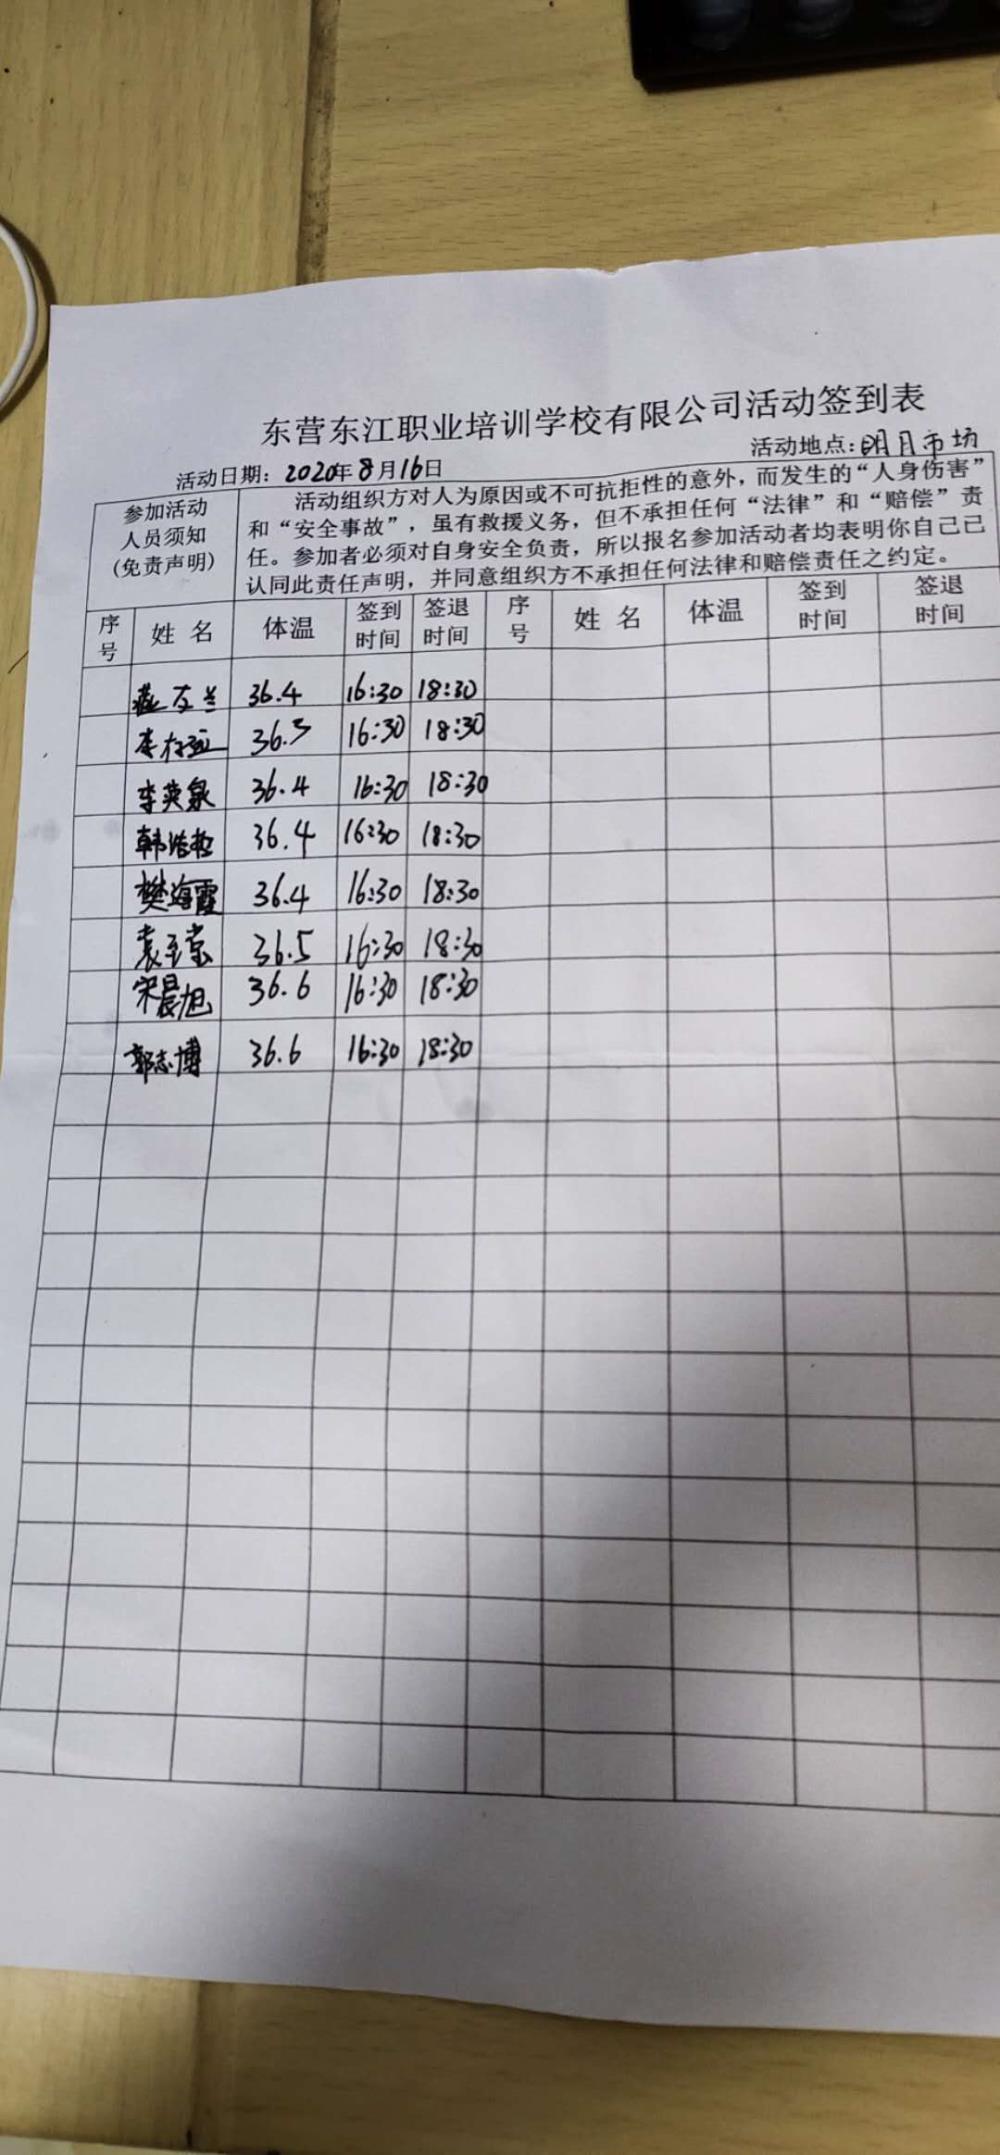 东营东江职业培训学校有限公司活动签到表
活动日期：2020年8月16日 活动地点：明月市场
参加活动
人员须知
(免责声明)
活动组织方对人为原因或不可抗拒性的意外，而发生的“人身伤害”
和“安全事故”，虽有救援义务，但不承担任何“法律”和“赔偿”责
任。参加者必须对自身安全负责，所以报名参加活动者均表明你自己已
认同此责任声明，并同意组织方不承担任何法律和赔偿责任之约定。
序号 姓名 体温 签到时间 签退时间 序号 姓名 体温 签到时间 签退时间
36.4 16:30 18:30
李 36.5 16:30 18:30
李英泉 36.4 16:30 18:30
韩浩哲 36.4 16:30 18:30
樊海霞 36.4 16:30 18:30
袁 36.5 16:30 18:30
宋晨旭 36.6 16:30 18:30
郭志博 36.6 16:30 18:30